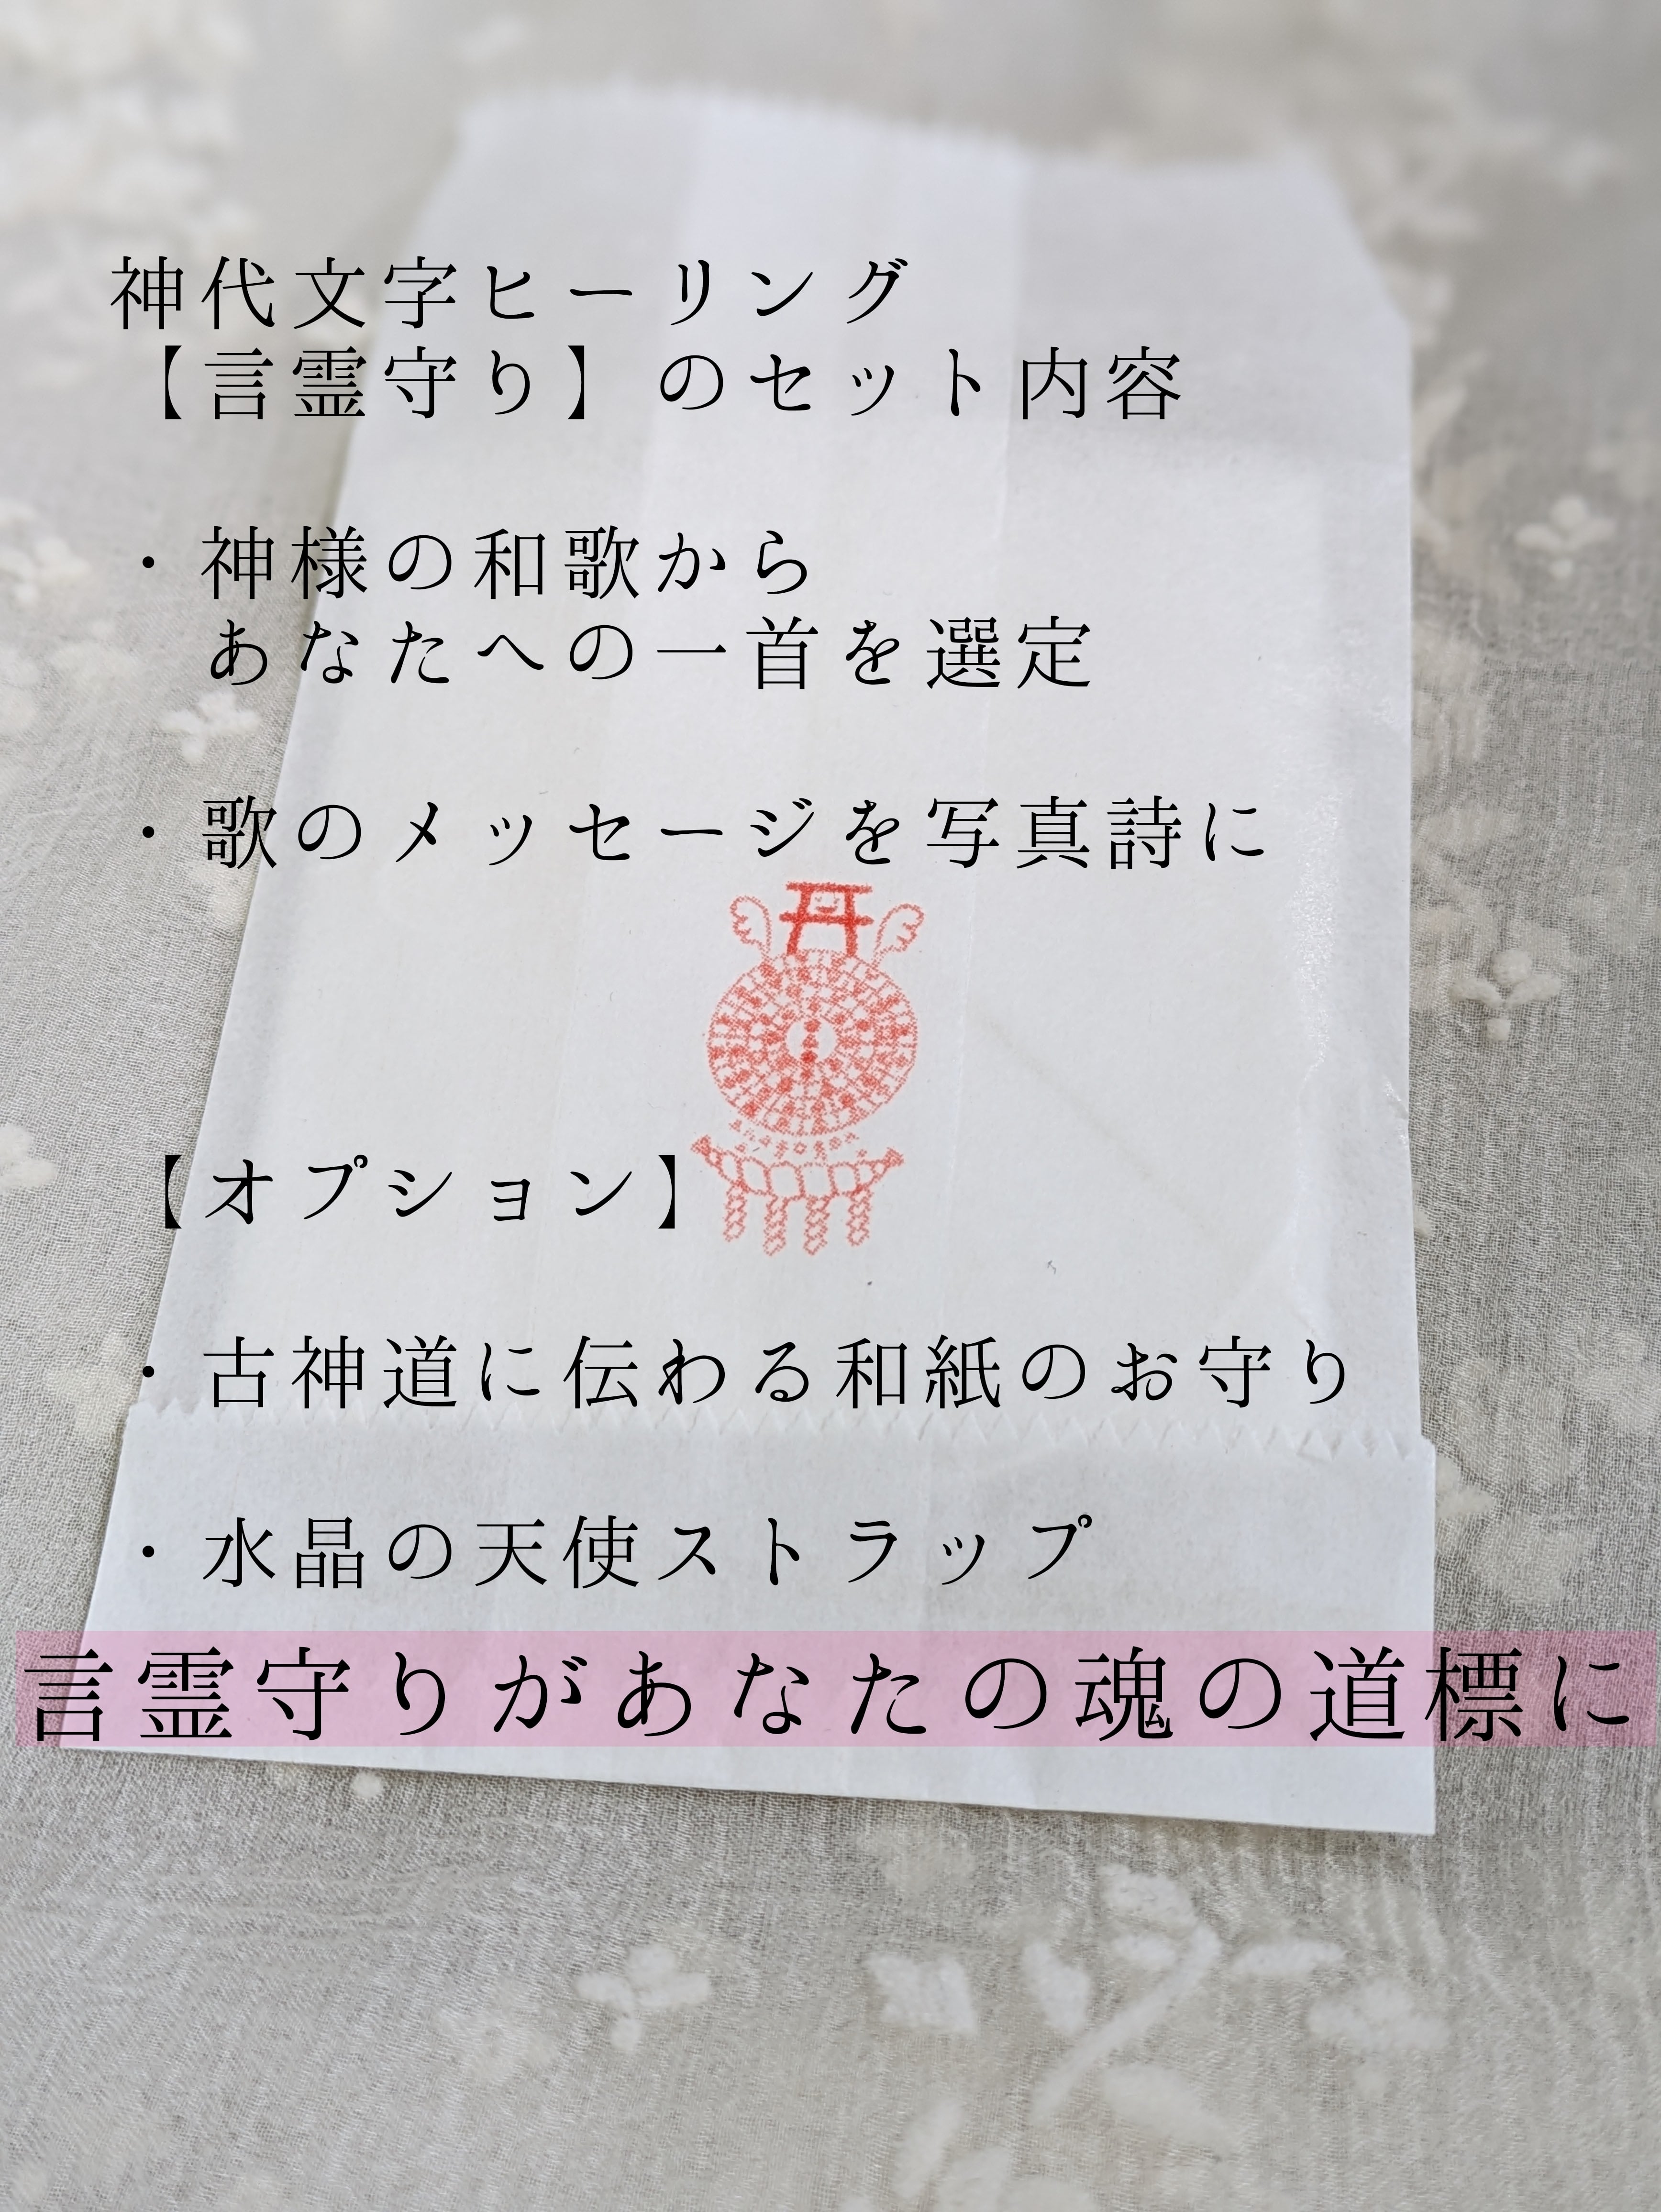 神代文字ヒーリング
【言霊守り】のセット内容
・神様の和歌から
あなたへの一首を選定
・歌のメッセージを写真詩に
【オプション】
・古神道に伝わる和紙のお守り
・水晶の天使ストラップ
言霊守りがあなたの魂の道標に